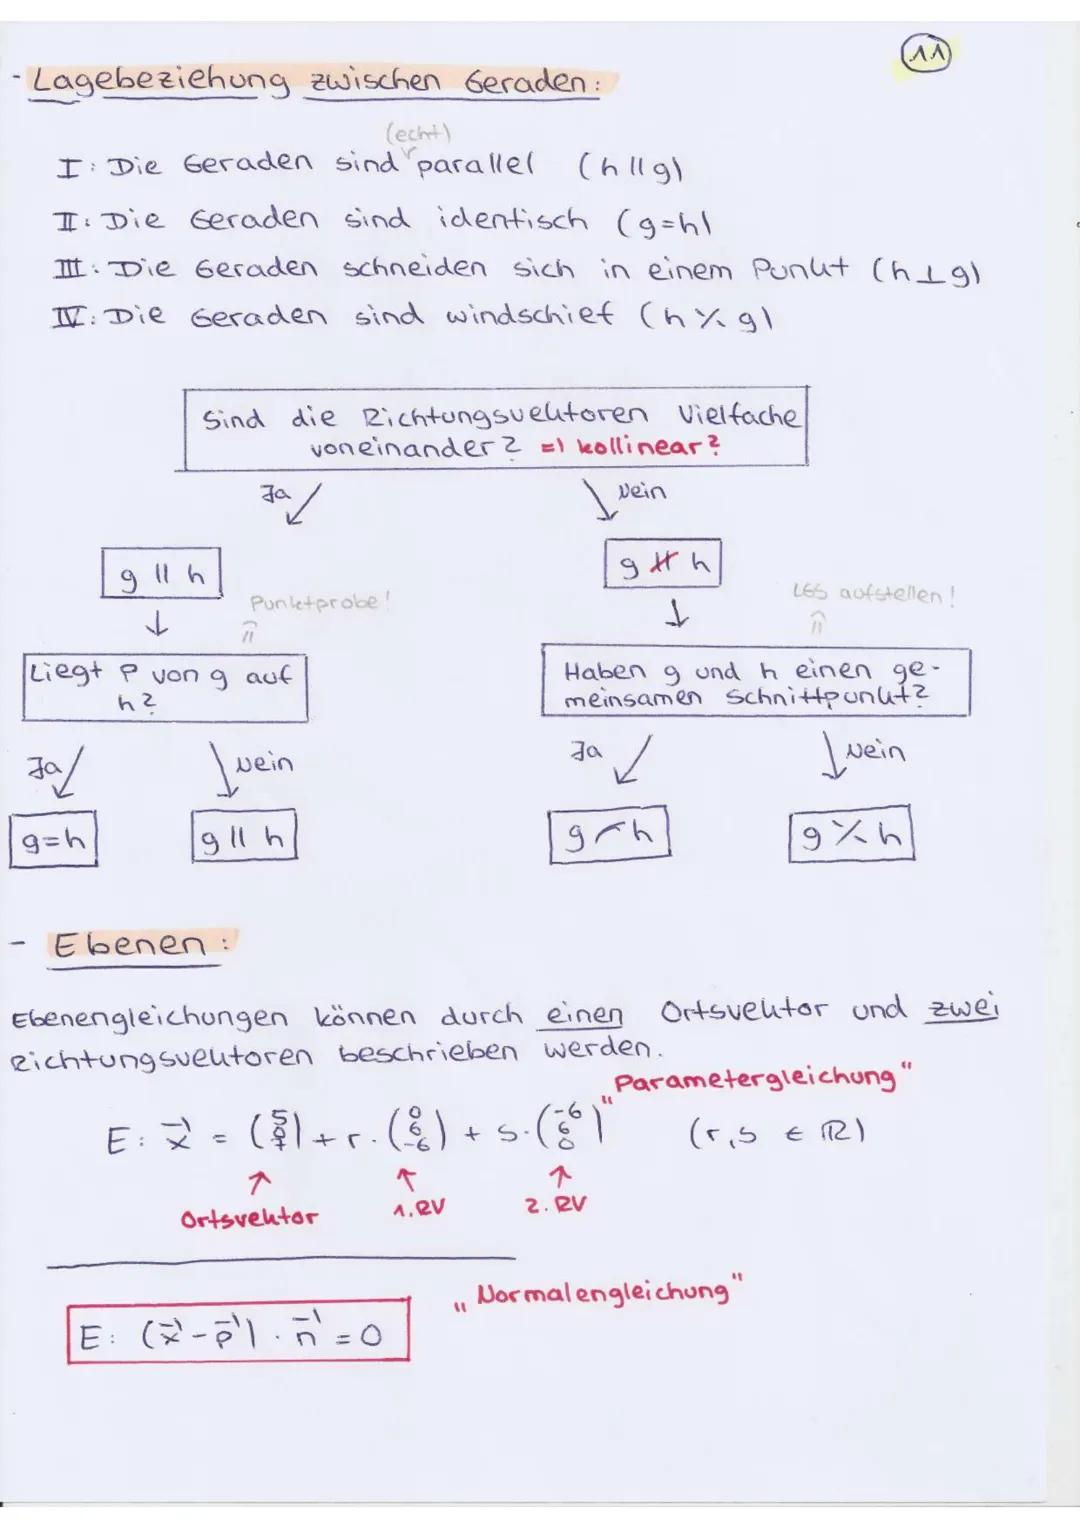 11
- Lagebeziehung zwischen Geraden:
(echt)
I: Die Geraden sind parallel (h || g)
II: Die Geraden sind identisch (g=h)
III: Die Geraden schneiden sich in einem Punkt (h ⊥ g)
IV: Die Geraden sind windschief (h ⁒ g)
Sind die Richtungsvektoren Vielfache
voneinander? => kollinear?
Ja Nein
g || h g ∦ h
Punktprobe! LGS aufstellen!
Liegt P von g auf
h?
Haben g und h einen ge-
meinsamen Schnittpunkt?
Ja Nein Ja Nein
g=h g || h g ⌢ h g ⁒ h
- Ebenen:
Ebenengleichungen können durch einen Ortsvektor und zwei
Richtungsvektoren beschrieben werden.
"Parametergleichung"
E: x⃗ = + r · (0 6 -6) + s · (-6 6 0) (r,s ∈ ℝ)
↑ ↑ ↑
Ortsvektor 1. RV 2. RV
„Normalengleichung"
E: (x⃗ - p⃗) · n⃗ = 0